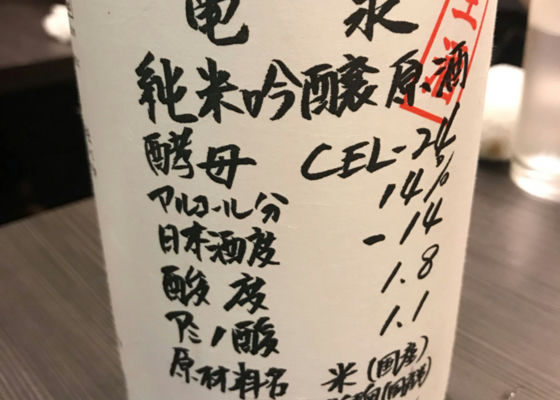 亀泉
純米吟醸原酒
酵母 CEL-24
アルコール分 14%
日本酒度 -14
酸度 1.8
アミノ酸 1.1
原材料名 米(国産)